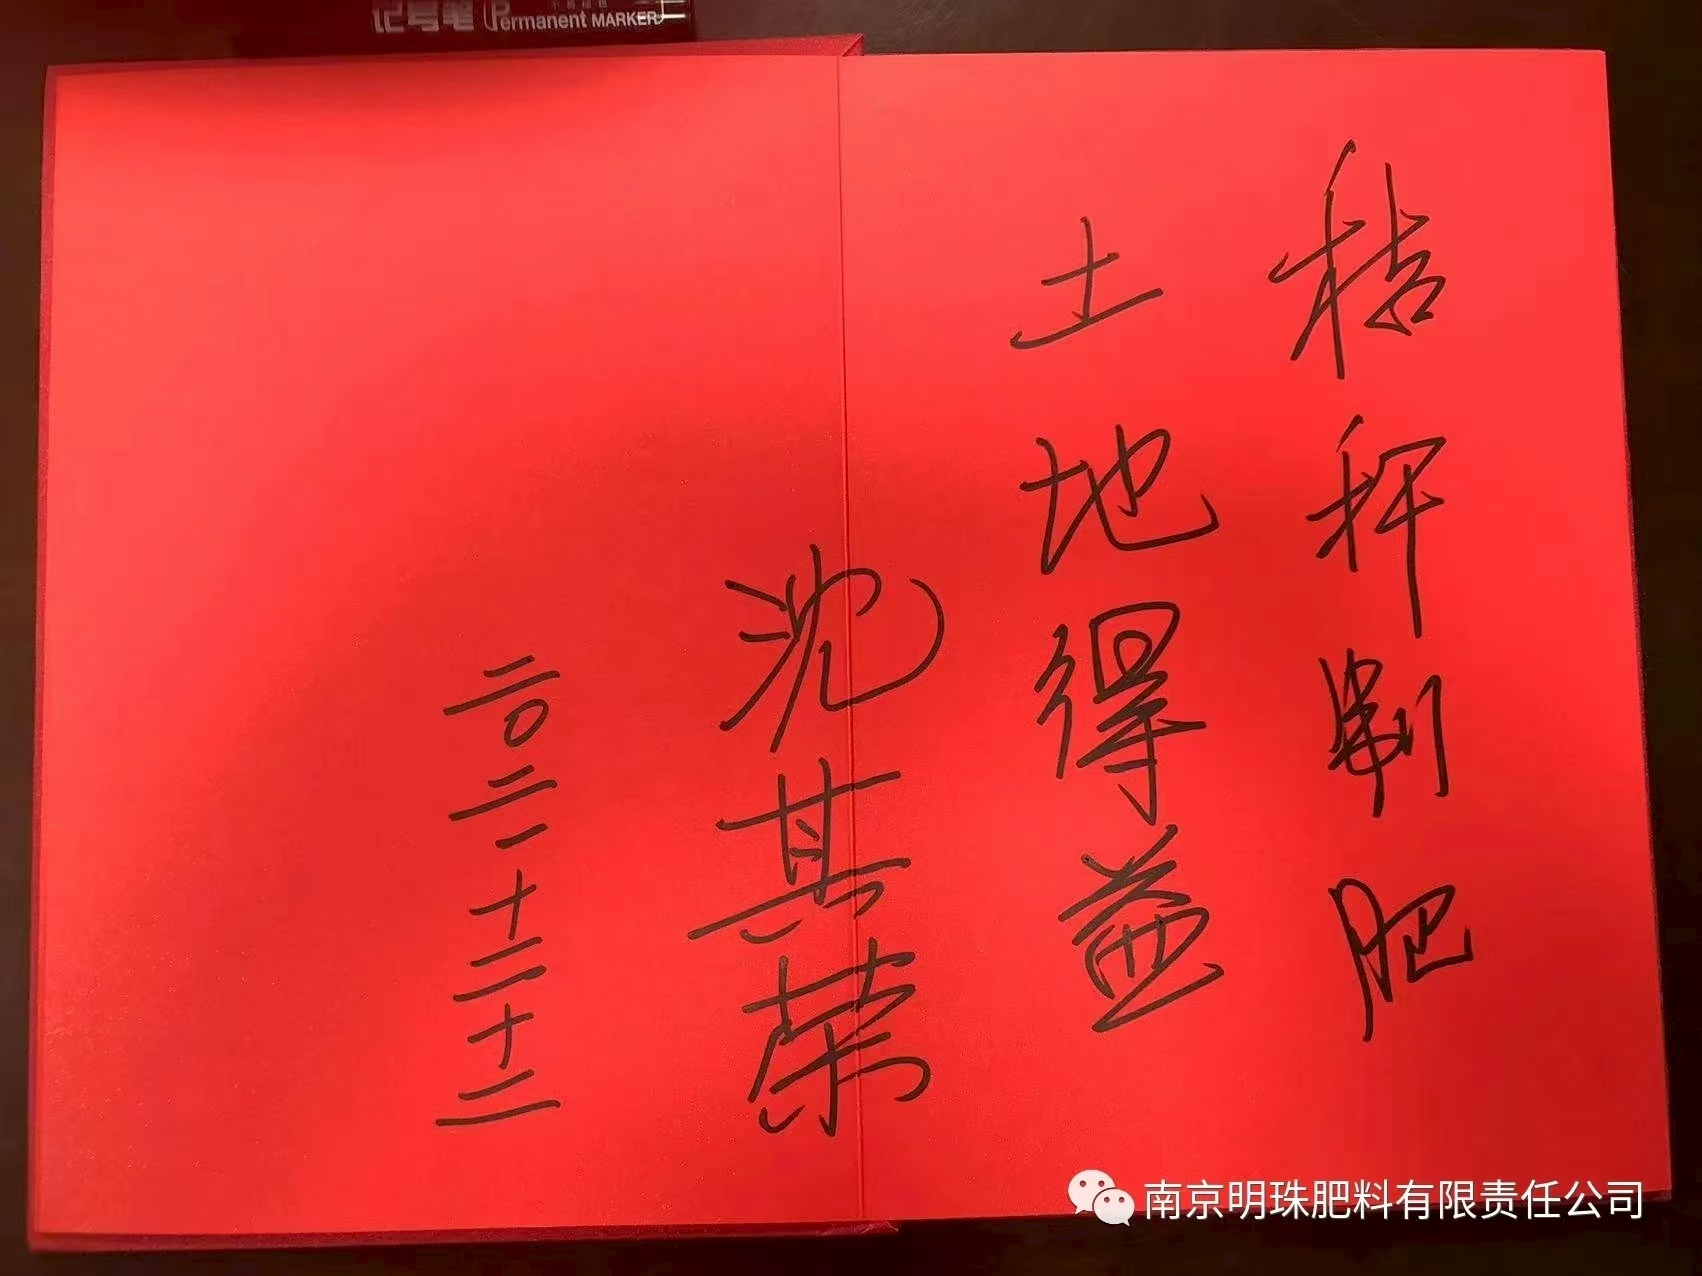 记号笔 Permanent MARKER
秸秆制肥
土地得益
沈其荣
二〇二一十二十二
南京明珠肥料有限责任公司